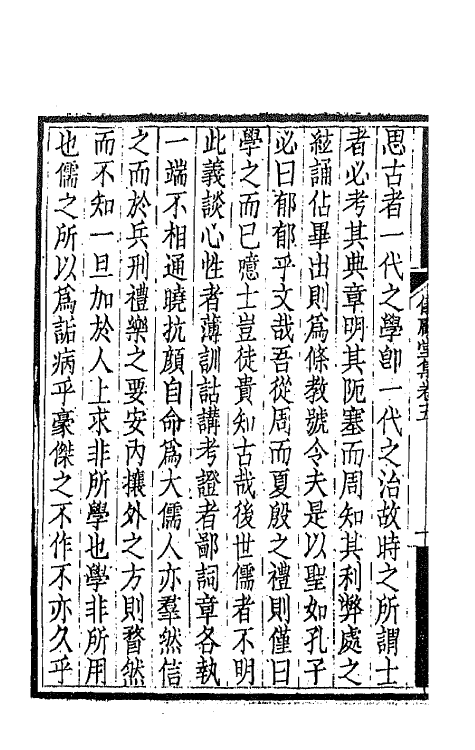 思古者一代之學卽一代之治故時之所謂士
者必考其典章明其阨塞而周知其利弊處之
絃誦佔畢出則爲條教號令夫是以聖如孔子
必曰郁郁乎文哉吾從周而夏殷之禮則僅曰
學之而已噫士豈徒貴知古哉後世儒者不明
此義談心性者薄訓詁講考證者鄙詞章各執
一端不相通曉抗顏自命爲大儒人亦羣然信
之而於兵刑禮樂之要安內攘外之方則瞀然
而不知一旦加於人上求非所學也學非所用
也儒之所以爲詬病乎豪傑之不作不亦久乎
堂集卷五